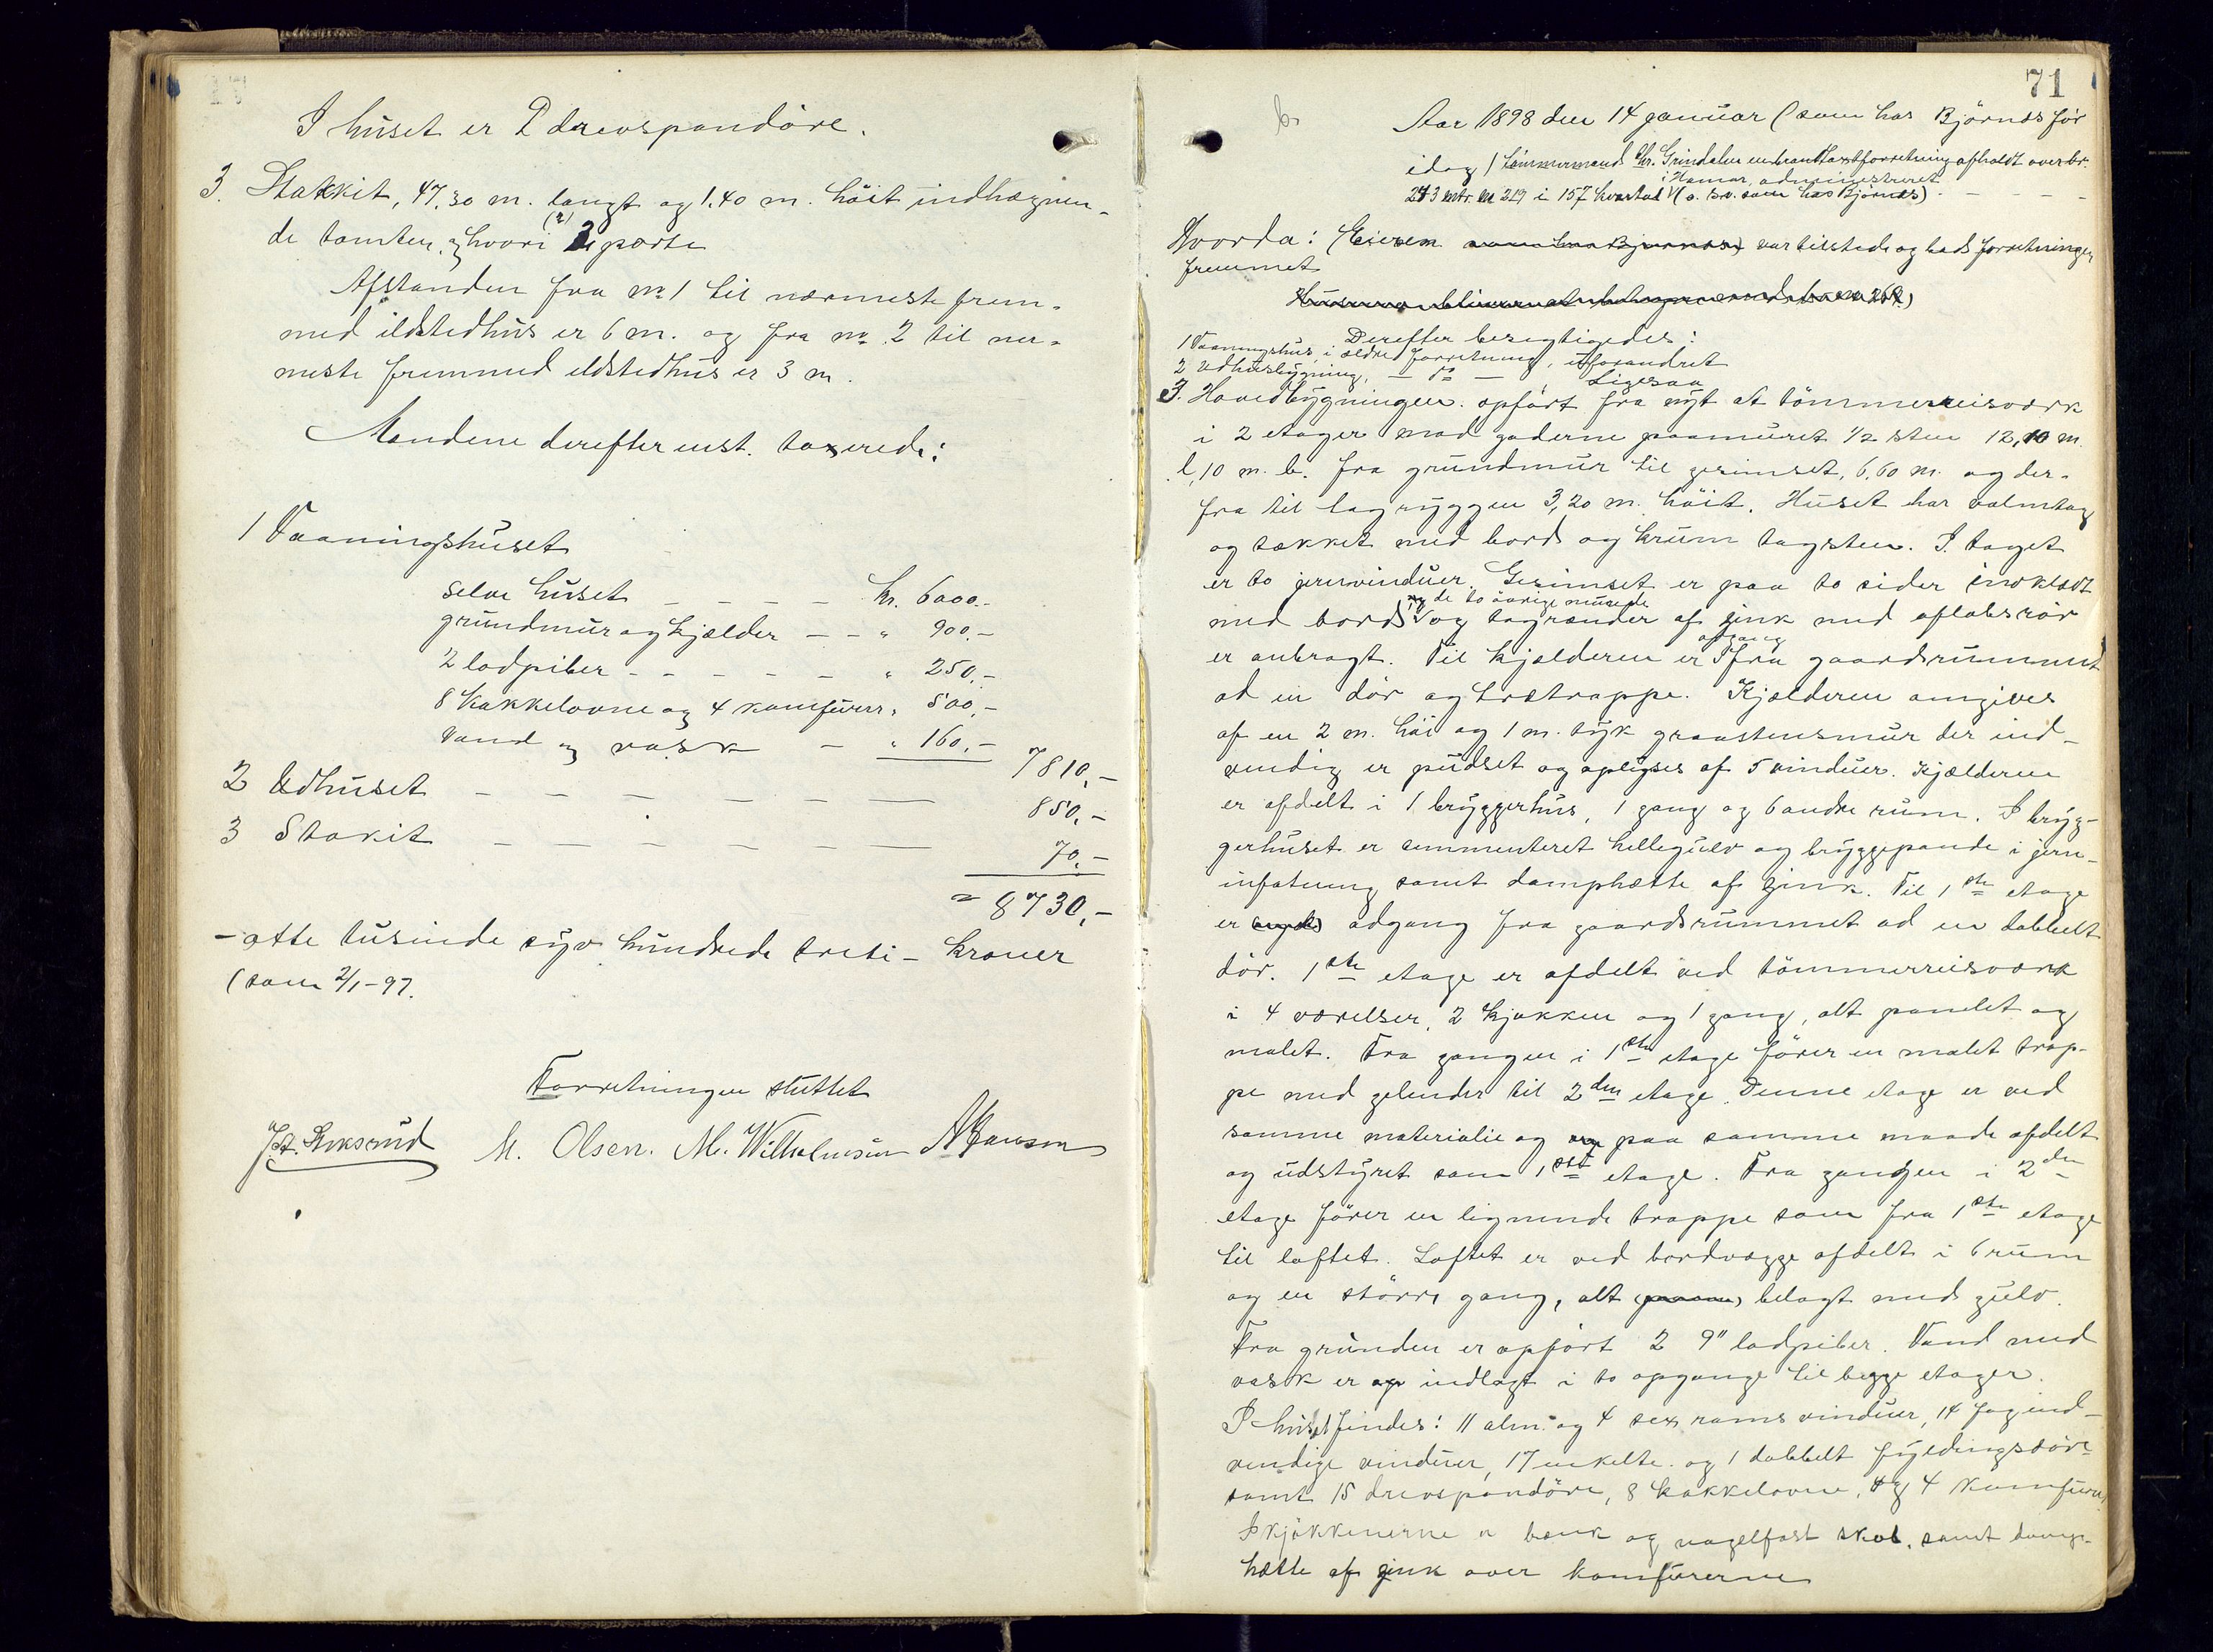 I huset er 2 drevspandöre.
3. Stakkit, 47,30 m. langt og 1,40 m. höit indhægnen-
de tomten, og hvori (2) 2 porte
Afstanden fra No 1 til nærmeste frem-
med ildstedhus er 6 m. og fra No 2 til nær-
meste fremmed ildstedhus er 3 m.
Mendene derefter enst. taxerede:
1 Vaaningshuset
selve huset - - - - kr. 6000.-
grundmur og kjælder - - " 900,-
2 lodpiber - - - - - " 250,-
8 kakkelovne og 4 komfurer " 500,-
Vand og vask - " 160,-
7810,-
2 Udhuset - - - - - - 850,-
3 Stakit - - - - - - 70,-
= 8730,-
- otte tusinde syv hundrede treti - kroner
(som 2/1-97.
Forretningen sluttet
M. Olsen. M. Wilhelmsen
71
Aar 1898 den 14 januar (som hos Björnås for
idag) tömmermand Chr. Grindalen en brandtaxtforretning afholdt over br.
243 mtr. No 219 i 157 kvartal i Hamar, administreret (o. s. v. som hos Björnås) - - -
Hvorda: Eieren var tilstede og bad forretningen
fremmet
Derefter besegtigedes:
1 Vaaningshus, i ældre forretning, uforandret
2 Udhusbygning, - do - , Ligesaa
3. Hovedbygningen. opfört fra nyt at tömmerreisverk
i 2 etager mod gaderne paamuret 1/2 sten 12,10 m.
l, 10 m. b. fra grundmur til gesimset, 6,60 m. og der-
fra til tagryggen 3,20 m. höit. Huset har valmtag
og tækket med bord og krum tagsten. I taget
er to jernvinduer. Gesimset er paa to sider indklædt
med bord og de to övrige murede og tagrender af zink med aflöbsrör
er anbragt. Til kjelderen er adgang fra gaardsrummet
ad en dör og trætrappe. Kjelderen omgives
af en 2 m. höi og 1 m. tyk graastensmur der ind-
vendig er pudset og oplyses af 5 vinduer. Kjælderen
er afdelt i 1 bryggerhus, 1 gang og 6 andre rum. I bryg-
gerhuset er cementeret hellegulv og bryggepande i jern-
infatning samt damphætte af zink. Til 1ste etage
er adgang fra gaardsrummet ad en dobbelt
dör. 1ste etage er afdelt ved tömmerreisværk
i 4 værelser, 2 kjökken og 1 gang, alt panelet og
malet. Fra gangen i 1ste etage förer en malet trap-
pe med gelender til 2den etage. Denne etage er ved
samme materialie og paa samme maade afdelt
og udstyret som 1ste etage. Fra gangen i 2den
etage förer en lignende trappe som fra 1ste etage
til loftet. Loftet er ved bordvægge afdelt i 6 rum
og en större gang, alt belagt med gulv.
Fra grunden er opfört 2 9" lodpiber. Vand med
vask er indlagt i to opgange til begge etager.
I huset findes: 11 alm. og 4 sex rams vinduer, 14 fag ind-
vendige vinduer, 17 enkelte og 1 dobbelt fyldingsdöre
samt 15 drevspandöre, 8 kakkelovne, og 4 komfurer
I kjökkenerne er benk og nagelfast skab, samt damp-
hætte af zink over komfurerne